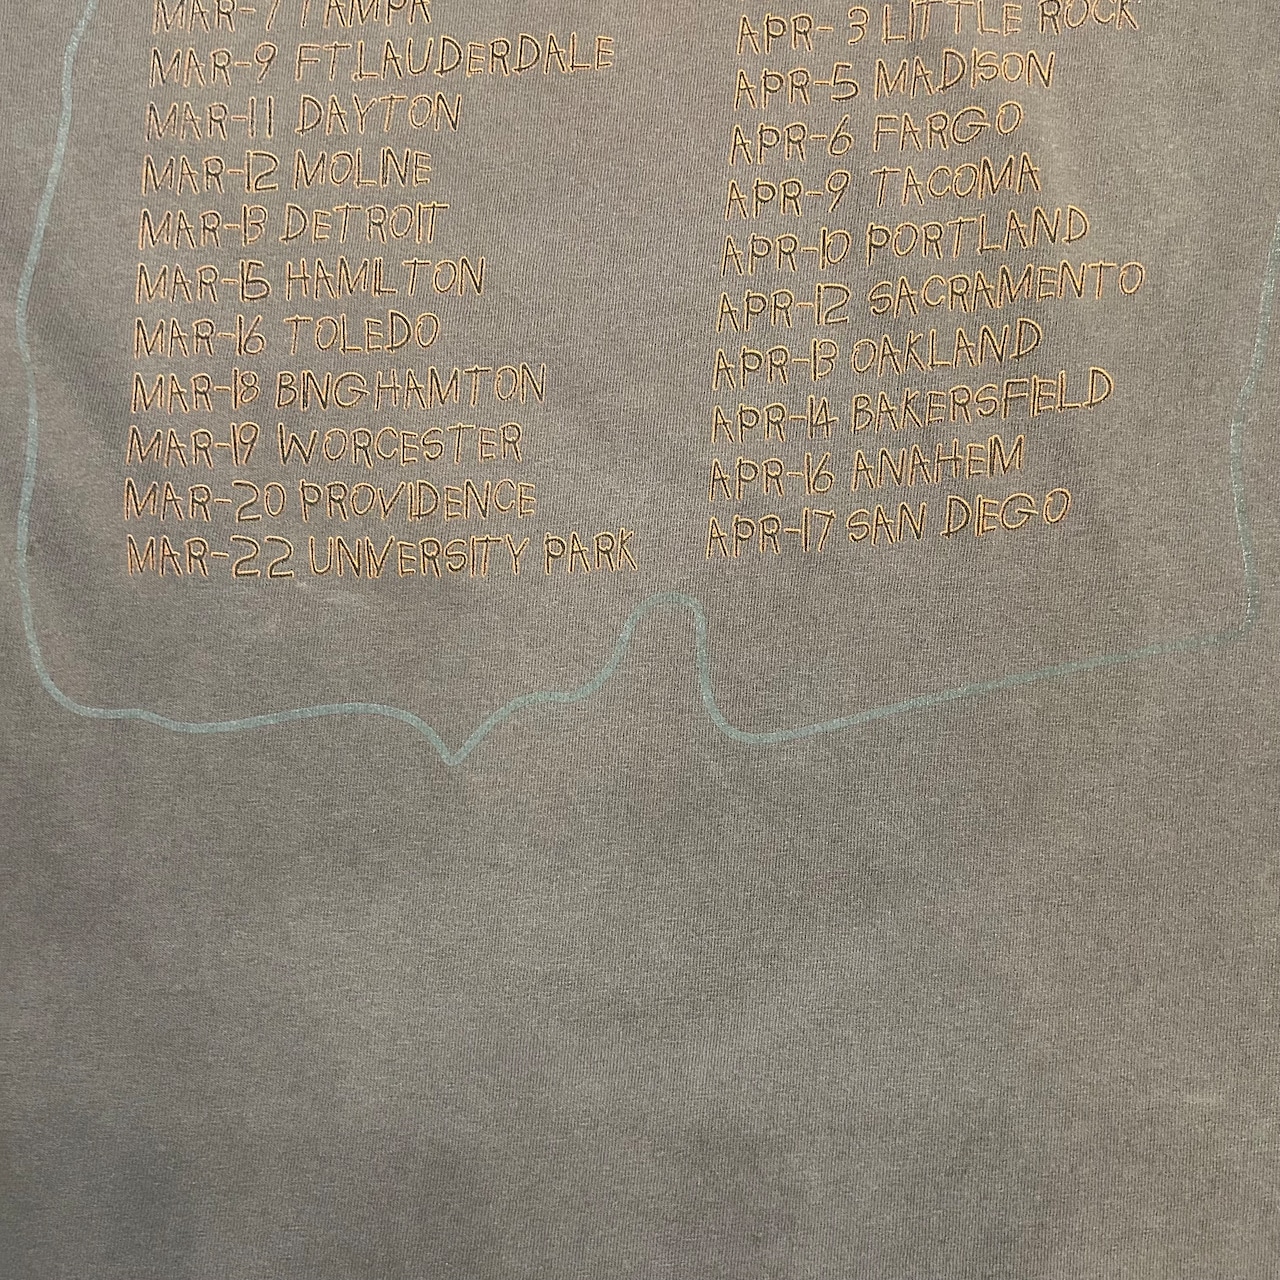 MAR-7 TAMPA
MAR-9 FT.LAUDERDALE
MAR-11 DAYTON
MAR-12 MOLINE
MAR-13 DETROIT
MAR-15 HAMILTON
MAR-16 TOLEDO
MAR-18 BINGHAMTON
MAR-19 WORCESTER
MAR-20 PROVIDENCE
MAR-22 UNIVERSITY PARK
APR-3 LITTLE ROCK
APR-5 MADISON
APR-6 FARGO
APR-9 TACOMA
APR-10 PORTLAND
APR-12 SACRAMENTO
APR-13 OAKLAND
APR-14 BAKERSFIELD
APR-16 ANAHEIM
APR-17 SAN DIEGO